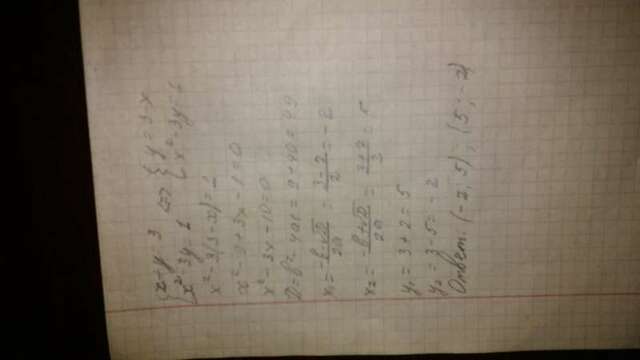 { x + y = 3 <=> { y = 3-x
x² - 3y = 1 x² - 3y = 1
x² - 3(3-x) = 1
x² - 9 + 3x - 1 = 0
x² - 3x - 10 = 0
D = b² - 4ac = 9 + 40 = 49
x₁ = (-b-√D)/2a = (3-7)/2 = -2
x₂ = (-b+√D)/2a = (3+7)/2 = 5
y₁ = 3 + 2 = 5
y₂ = 3 - 5 = -2
Ответ: (-2; 5) ; (5; -2)